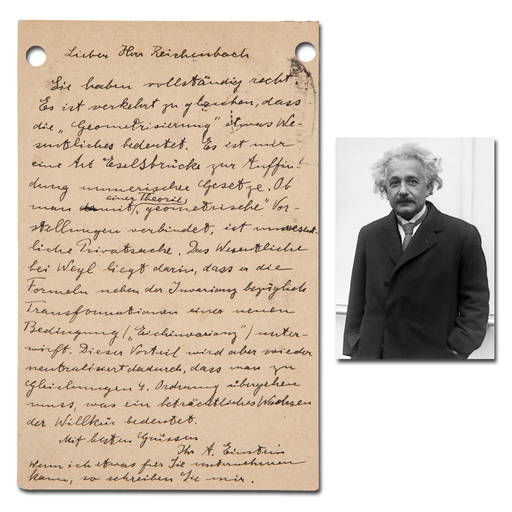 Lieber Herr Reichenbach
Sie haben vollständig recht.
Es ist verkehrt zu glauben, dass
die „Geometrisierung" etwas We-
sentliches bedeutet. Es ist nur
eine Art Eselsbrücke zur Auffin-
dung numerischer Gesetze. Ob
man mit einer Theorie „geometrische" Vor-
stellungen verbindet, ist unwesent-
liche Privatsache. Das Wesentliche
bei Weyl liegt darin, dass er die
Formeln neben der Invarianz bezüglich
Transformationen einer neuen
Bedingung („Eichinvarianz") unter-
wirft. Dieser Vorteil wird aber wieder
neutralisiert dadurch, dass man zu
Gleichungen 4. Ordnung übergehen
muss, was ein beträchtliches Wachsen
der Willkür bedeutet.
Mit besten Grüssen
Ihr A. Einstein
Wenn ich etwas für Sie unternehmen
kann, so schreiben Sie mir.